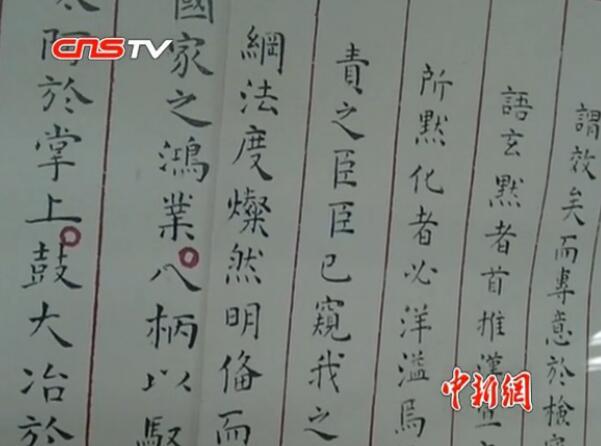 CNSTV
謂效矣而專意於
語玄默者首推漢宣
所默化者必洋溢焉
責之臣臣已窺我之
綱法度燦然明俻而
國家之鴻業八柄以馭
阿於掌上鼓大冶於
中新網